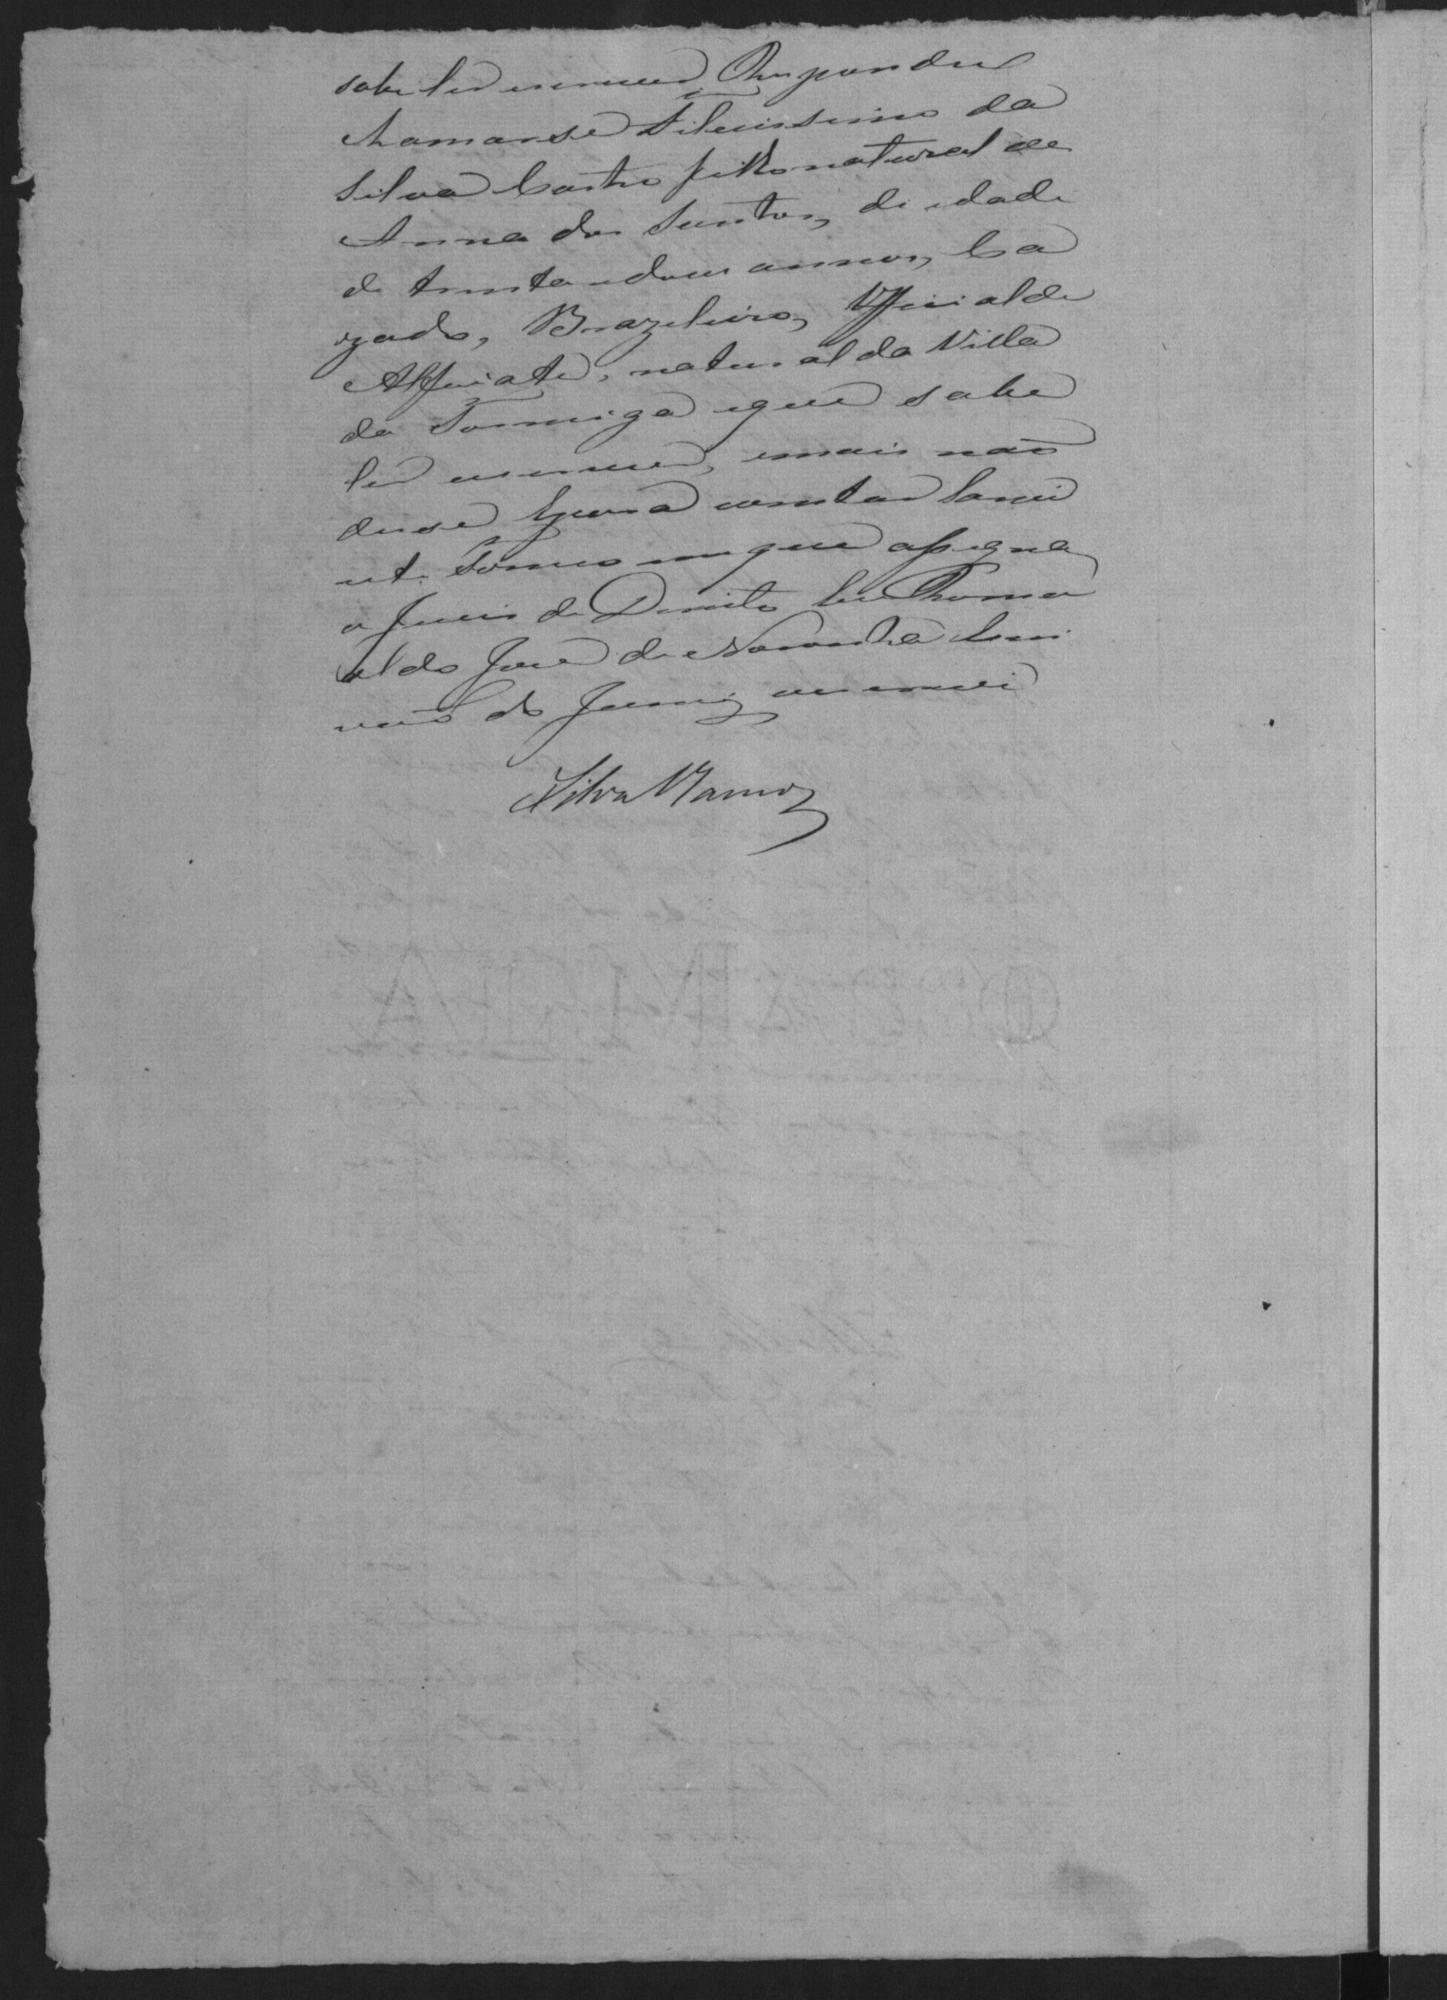 sabe ler e escrever? Respondeu
chamar-se Felicissimo da
Silva Castro filho natural de
Anna dos Santos, de idade
de trinta e dous annos, Ca
zado, Brazileiro, Official de
Alfaiate, natural da Villa
da Formiga e que sabe
ler e escrever, e mais não
disse E para constar lavrei
este termo em que assigna
o Juis de Direito Eu Roma
aldo José de Noronha Escri
vão do Jury o escrevi
Silva Ramos